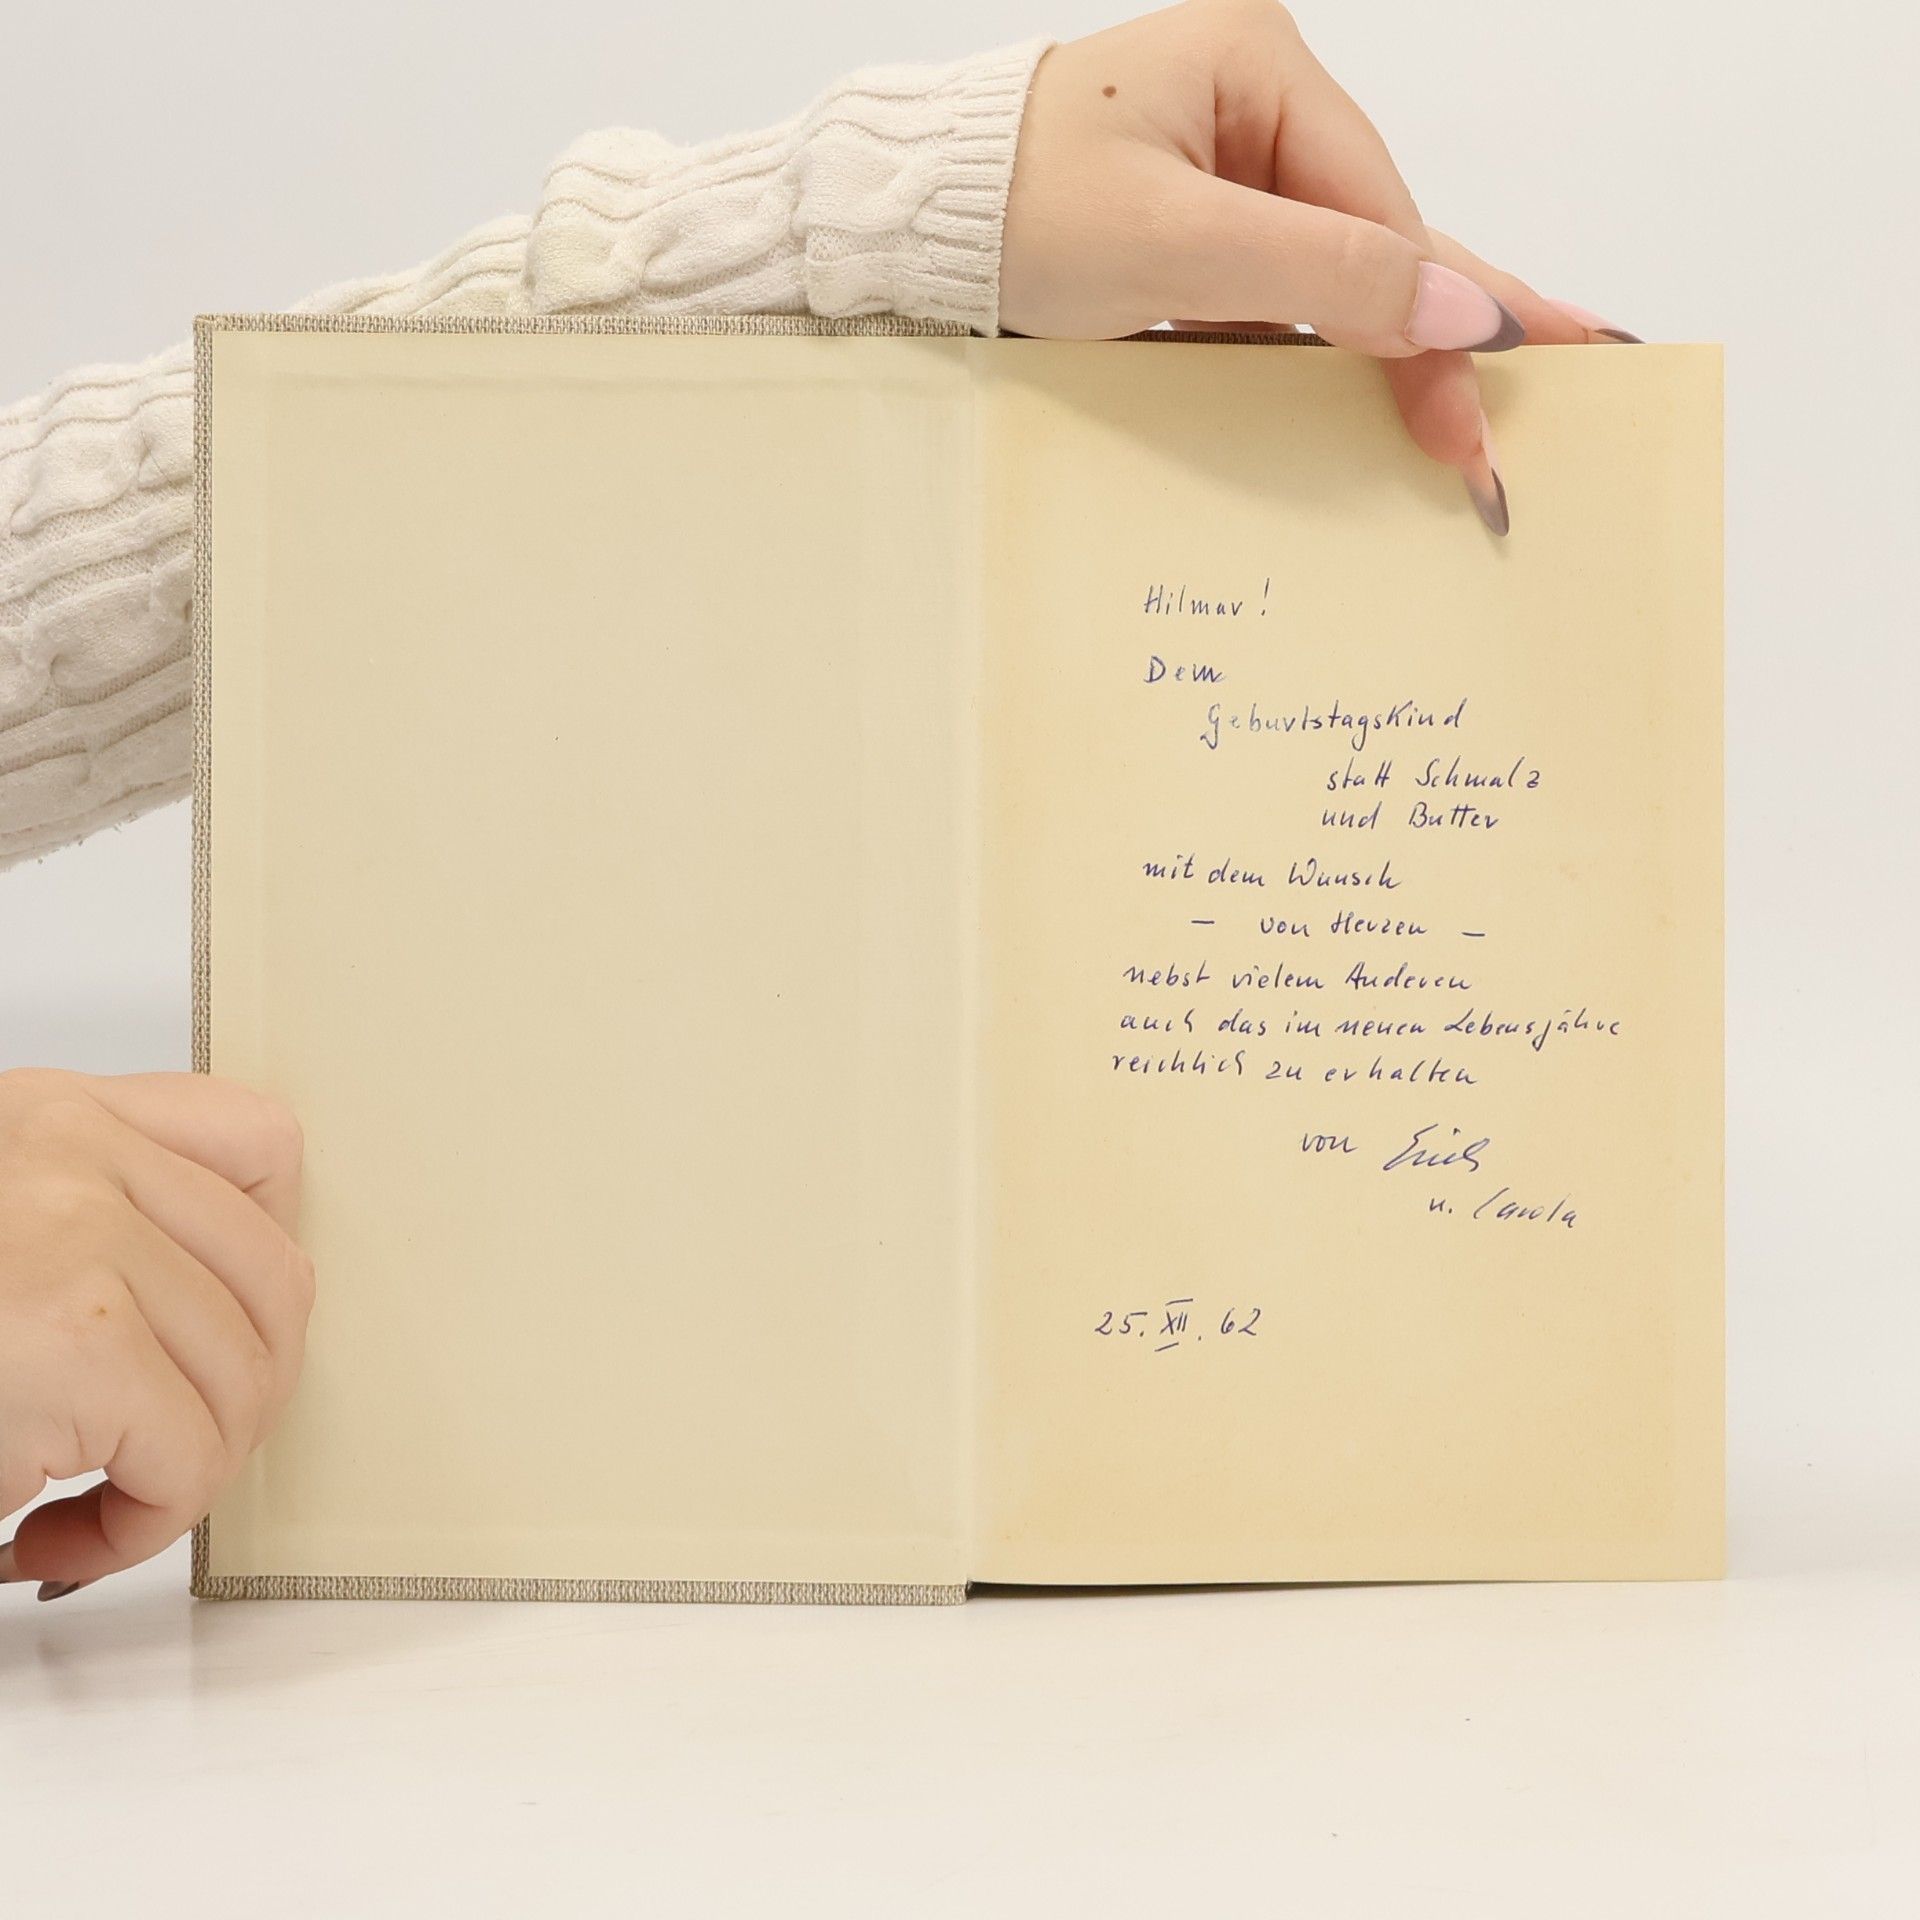 Hilmar!
Dem
Geburtstagskind
statt Schmalz
und Butter
mit dem Wunsch
— von Herzen —
nebst vielem Anderen
auch das im neuen Lebensjahre
reichlich zu erhalten
von Erich
u. Carola
25. XII. 62